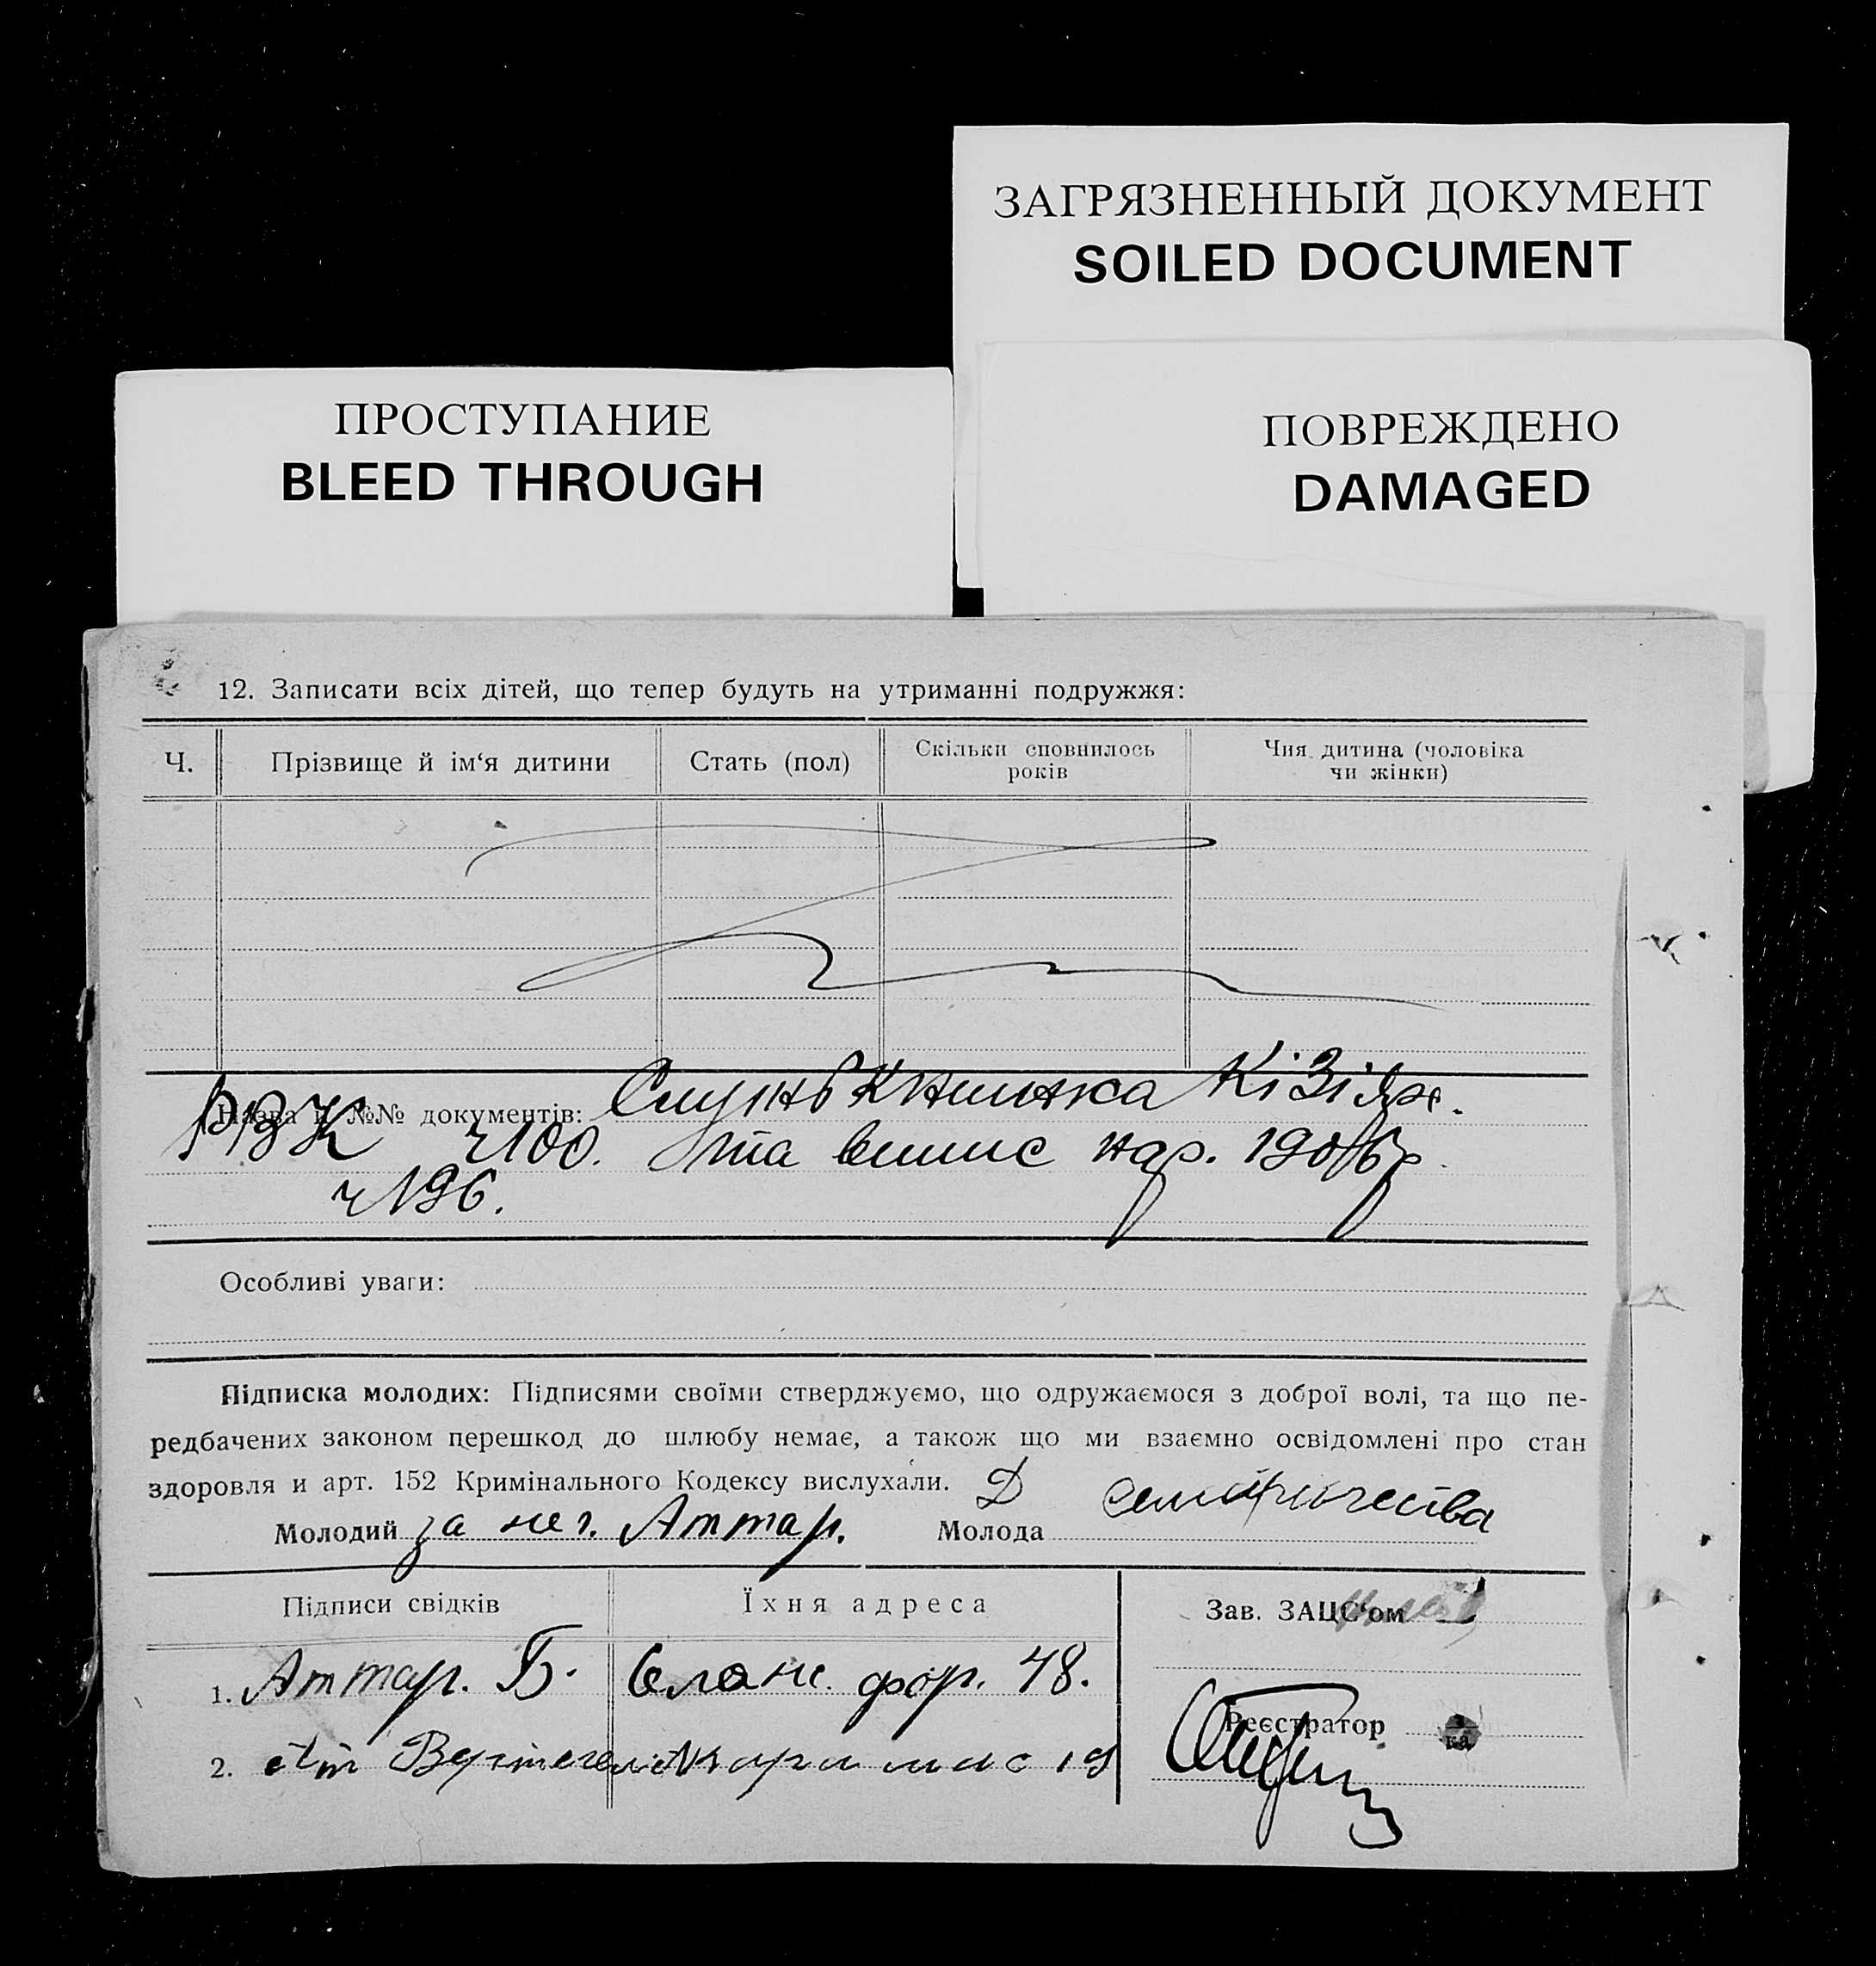 ЗАГРЯЗНЕННЫЙ ДОКУМЕНТ
SOILED DOCUMENT
ПРОСТУПАНИЕ
BLEED THROUGH
ПОВРЕЖДЕНО
DAMAGED
12. Записати всіх дітей, що тепер будуть на утриманні подружжя:
Ч.
Прізвище й ім‘я дитини
Стать (пол)
Скільки сповнилось
років
Чия дитина (чоловіка
чи жінки)
Назва й №№ документів:
РВК ч 100. та випис нар. 1906р.
ч 196.
Особливі уваги:
Підписка молодих: Підписями своїми стверджуємо, що одружаємося з доброї волі, та що пе-
редбачених законом перешкод до шлюбу немає, а також що ми взаємно освідомлені про стан
здоровля и арт. 152 Кримінального Кодексу вислухали.
Молодий за нег. Аттар. Молода
Підписи свідків
Їхня адреса
Зав. ЗАЦС‘ом
1. Аттар. Б. фор. 48.
Реєстратор
2. 19